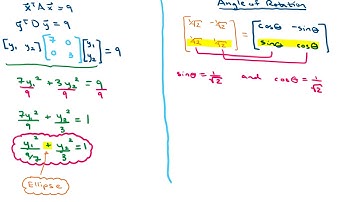 x̄ᵀA x̄ = 9
ȳᵀD ȳ = 9
[y₁ y₂] [7 0; 0 3] [y₁; y₂] = 9
7y₁²/9 + 3y₂²/9 = 9/9
7y₁²/9 + y₂²/3 = 1
y₁²/(9/7) + y₂²/3 = 1
Ellipse
Angle of Rotation
[1/√2 -1/√2; 1/√2 1/√2] = [cosθ -sinθ; sinθ cosθ]
sinθ = 1/√2 and cosθ = 1/√2